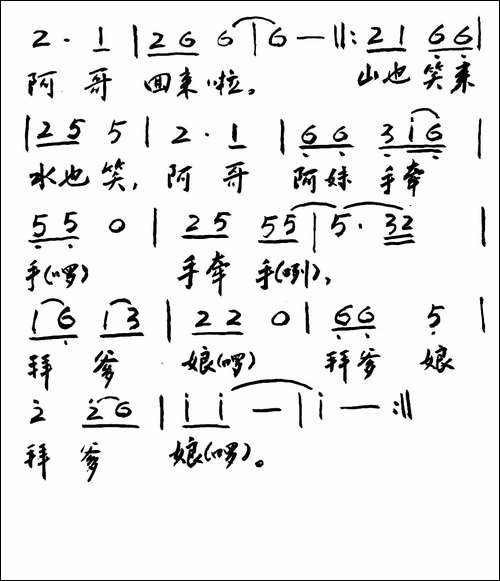 2· 1 | 2 6 6 | 6 — ‖: 2 1 6 6 |
阿 哥 回来啦。 山也 笑来
| 2 5 5 | 2· 1 | 6 6 3 i 6 |
水也 笑, 阿 哥 阿妹 手牵
5 5 0 | 2 5 5 5 | 5· 3 2 |
手(啰) 手牵 手(咧),
1 6 1 3 | 2 2 0 | 6 6 5 |
拜 爹 娘(啰) 拜爹 娘
2 2 6 | i i — | i — :‖
拜 爹 娘(啰)。